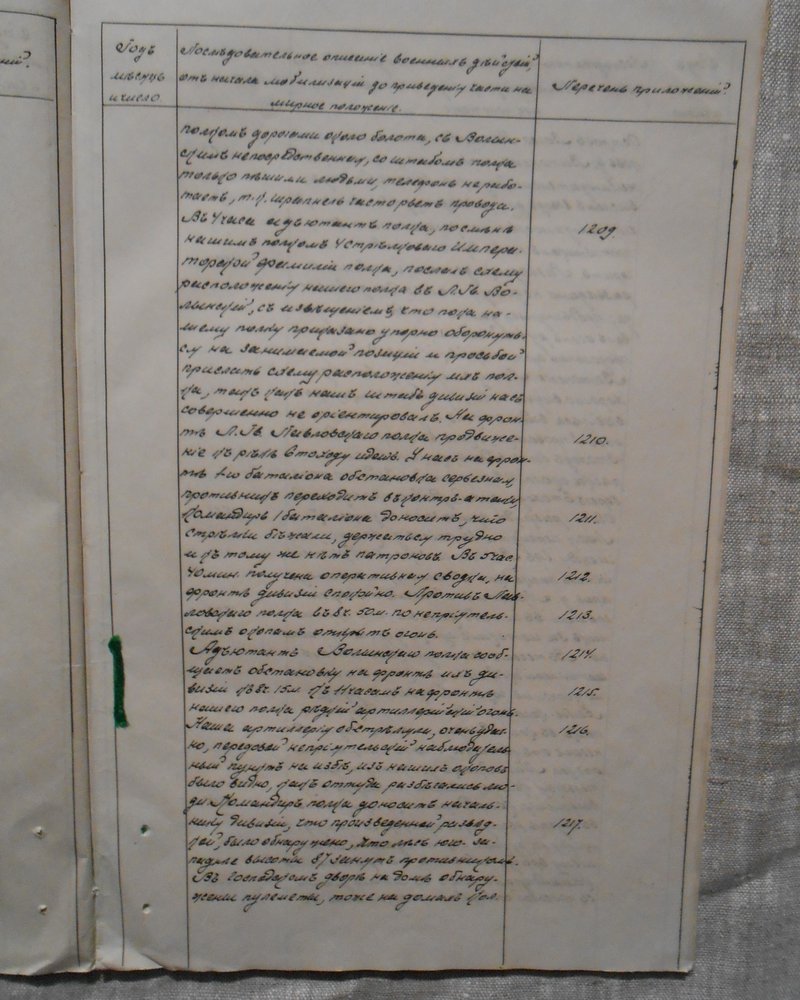 Годъ
мѣсяцъ
и число.
Послѣдовательное описаніе военныхъ дѣйствій,
отъ начала мобилизаціи до приведенія части на
мирное положеніе.
Перечень приложеній.
полкомъ дорогами около болота, съ Волын-
скимъ непосредственная, со штабомъ полка
только пѣшими людьми, телефонъ не рабо-
таетъ, т.к. шрапнель часто рветъ провода.
Въ 4 часа адъютантъ полка, посланъ
нашимъ полкомъ 4 Стрѣлковаго Импера-
торской фамиліи полка, послалъ схему
расположенія нашего полка въ Л.Гв. Во-
лынскій, съ извѣщеніемъ, что пока на-
шему полку приказано упорно оборонять-
ся на занимаемой позиціи и просьбой
прислать схему расположенія ихъ пол-
ка, такъ какъ нашъ штабъ дивизіи насъ
совершенно не оріентировалъ. На фрон-
тѣ Л.Гв. Павловскаго полка продвиже-
ніе къ рѣкѣ Стоходу идетъ. У насъ на фрон-
тѣ 1-го баталіона обстановка серьезная,
противникъ переходитъ въ контръ-атаки,
Командиръ 1 баталіона доноситъ, что
стрѣлки бѣжали, держаться трудно
и къ тому же нѣтъ патроновъ. Въ 5 час.
40 мин. получена оперативная сводка, на
фронтѣ дивизіи спокойно. Противъ Пав-
ловскаго полка въ 8 ч. 50 м. по непріятель-
скимъ окопамъ открытъ огонь.
Адъютантъ Волынскаго полка сооб-
щаетъ обстановку на фронтѣ ихъ ди-
визіи къ 8 ч. 15 м. Къ 11 часамъ на фронтѣ
нашего полка рѣдкій артиллерійскій огонь.
Наша артиллерія обстрѣляла, очень удач-
но, передовой непріятельскій наблюдатель-
ный пунктъ на избѣ, изъ нашихъ окоповъ
было видно, какъ оттуда разбѣгались лю-
ди. Командиръ полка доноситъ началь-
нику дивизіи, что произведенной развѣд-
кой, было обнаружено, что лѣсъ юго-за-
паднѣе высоты 87 занятъ противникомъ.
Въ Господскомъ дворѣ на домѣ обнару-
жены пулеметы, тоже на домахъ кол.
1209.
1210.
1211.
1212.
1213.
1214.
1215.
1216.
1217.